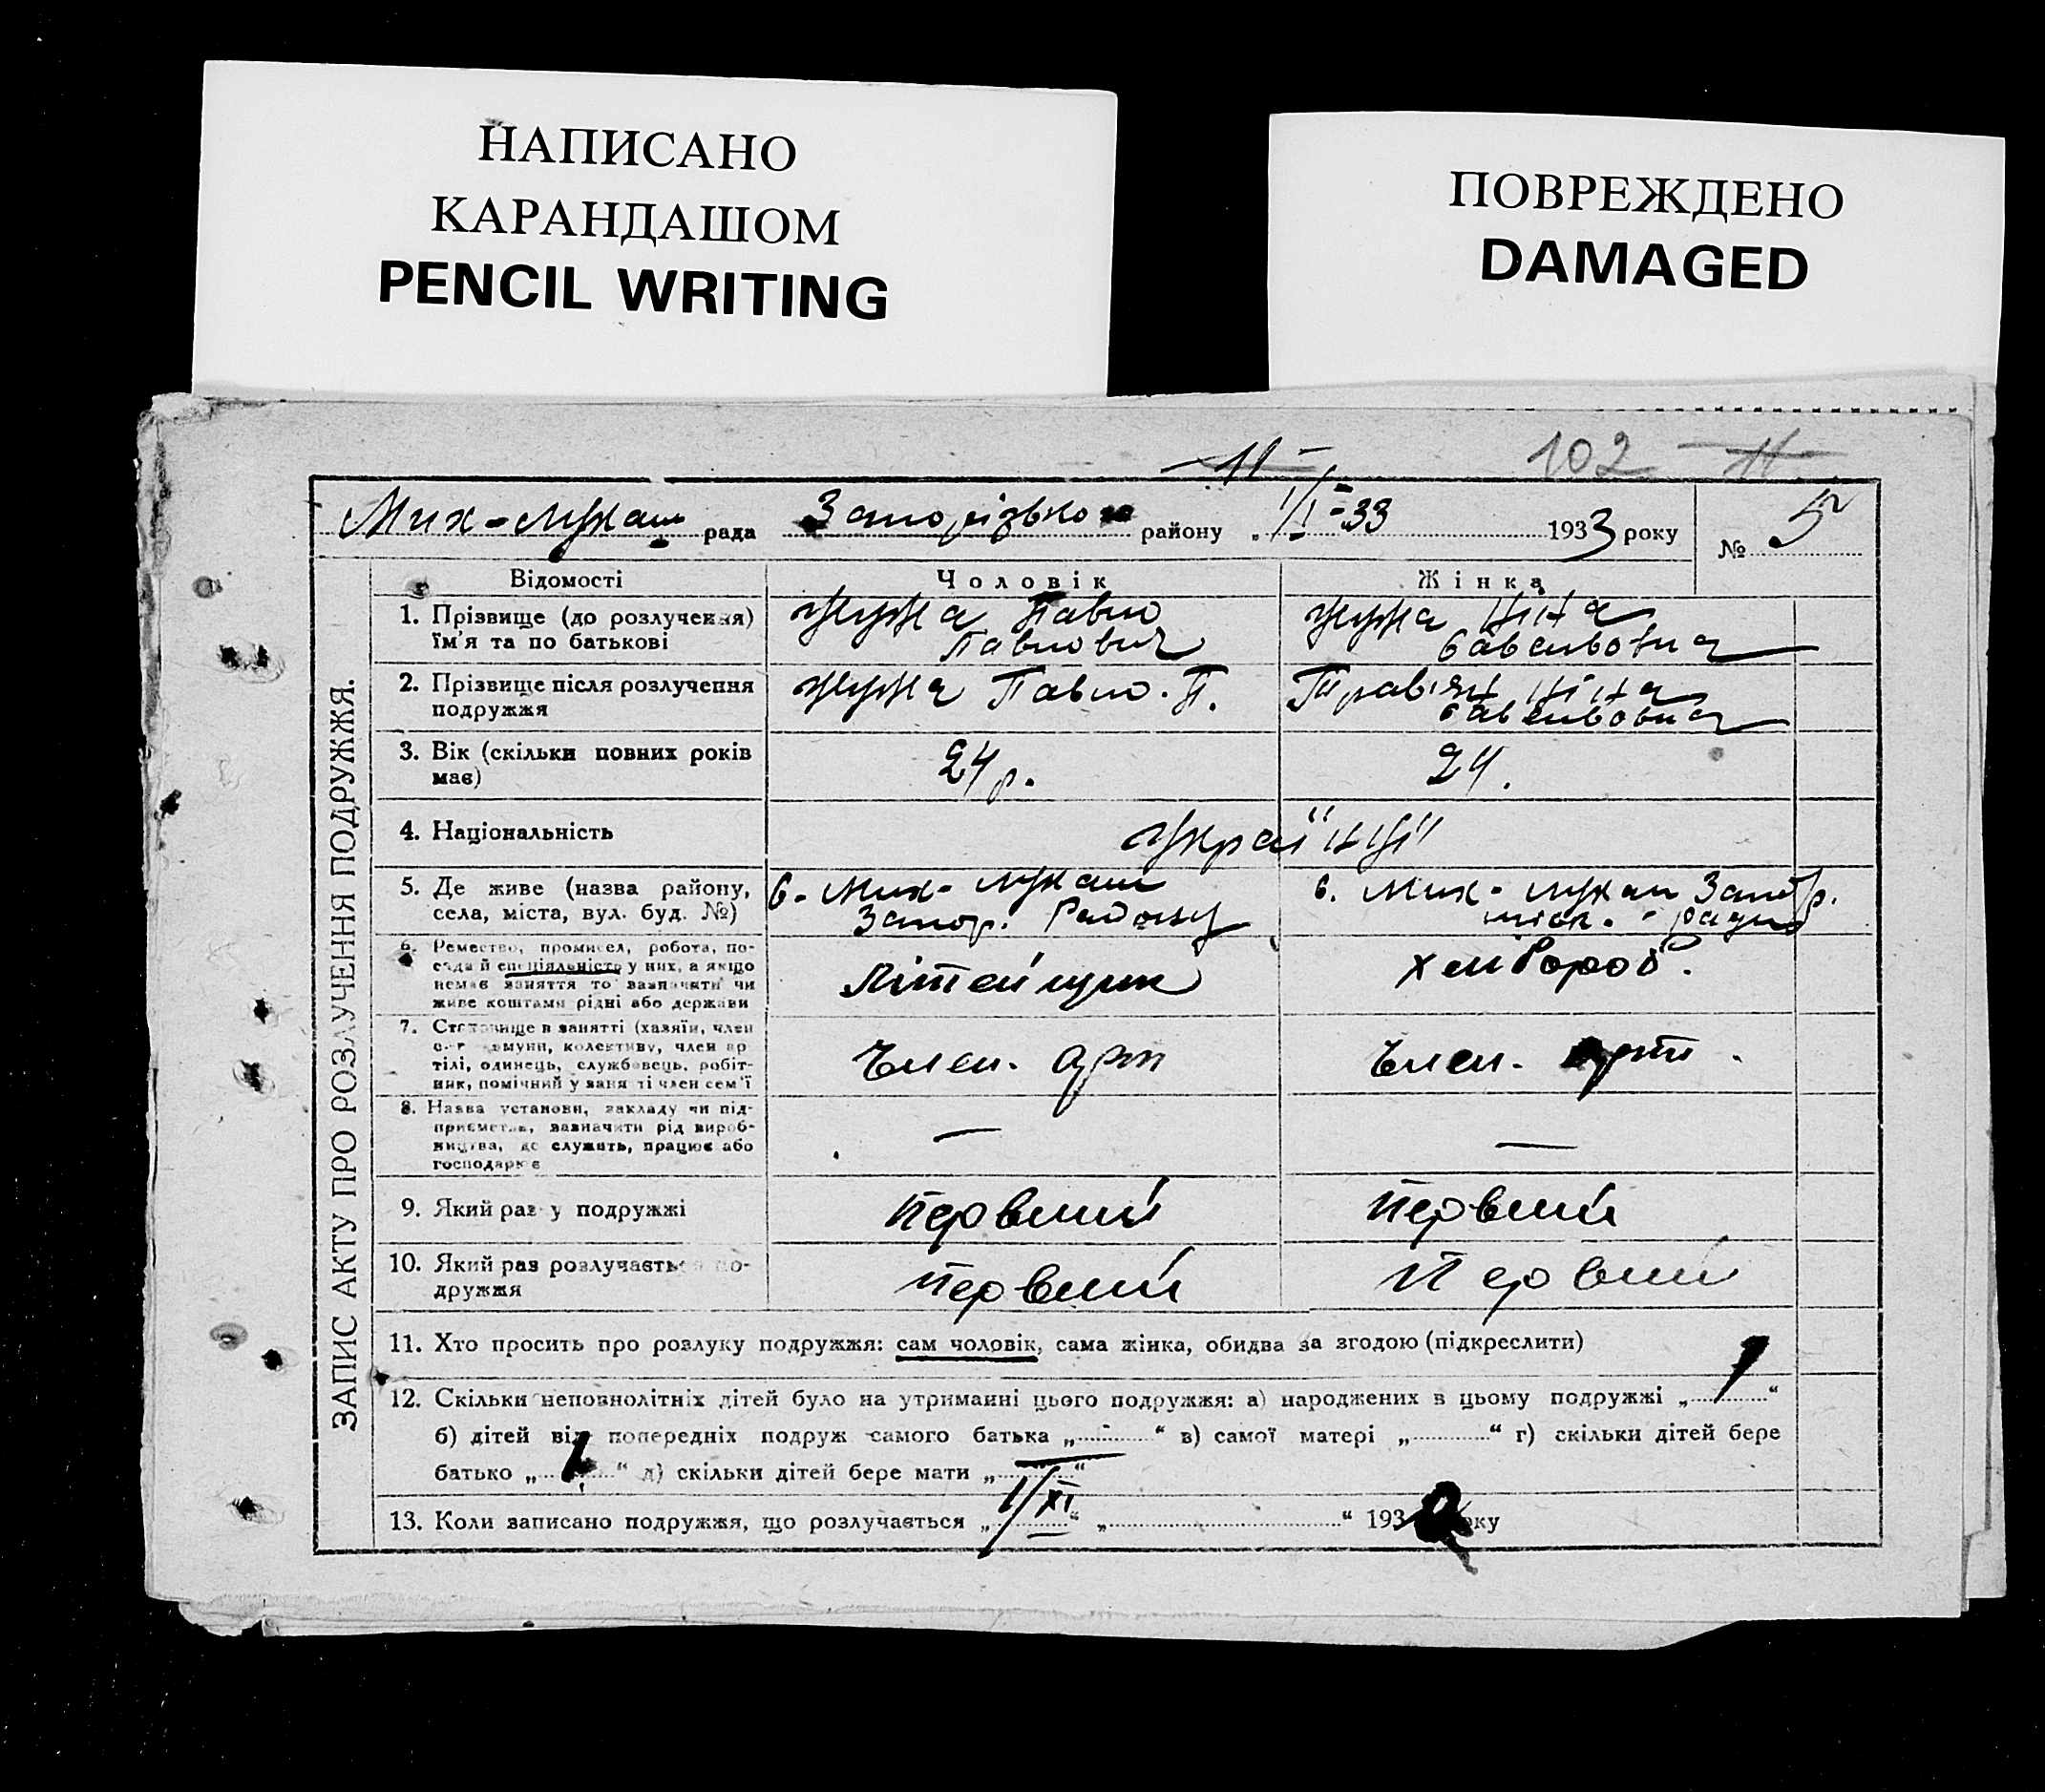 НАПИСАНО
КАРАНДАШОМ
PENCIL WRITING
ПОВРЕЖДЕНО
DAMAGED
11
102 11
Мих-Лукаш рада Запорізького району „ 1/I-33 1933 року № 5
ЗАПИС АКТУ ПРО РОЗЛУЧЕННЯ ПОДРУЖЖЯ.
Відомості Чоловік Жінка
1. Прізвище (до розлучення) їм'я та по батькові
Павло Павлович
Ніна
2. Прізвище після розлучення подружжя
Павло. П.
Ніна
3. Вік (скільки повних років має)
24 р.
24.
4. Національність
Українці
5. Де живе (назва району, села, міста, вул. буд. №)
с. Мих-Лукаш
Запор.
с. Мих-Лукаш Запор.
міск. - раду
6. Ремество, промисел, робота, посада й спеціяльність у них, а якщо немає заняття то зазначити чи живе коштами рідні або держави
Літейщик
хлібороб.
7. Становище в занятті (хазяїн, член комуни, колективу, член артілі, одинець, службовець, робітник, помічний у занятті член сем'ї
Член. арт
Член. арти.
8. Назва установи, закладу чи підприємства, зазначити рід виробництва, де служить, працює або господарює
—
—
9. Який раз у подружжі
первий
первий
10. Який раз розлучається подружжя
первий
Первий
11. Хто просить про розлуку подружжя: сам чоловік, сама жінка, обидва за згодою (підкреслити)
12. Скільки неповнолітніх дітей було на утриманні цього подружжя: а) народжених в цьому подружжі „ 1 “
б) дітей від попередніх подруж самого батька „ “ в) самої матері „ “ г) скільки дітей бере
батько „ 1 “ д) скільки дітей бере мати „ — “
13. Коли записано подружжя, що розлучається „ 1/XI “ „ “ 193 року